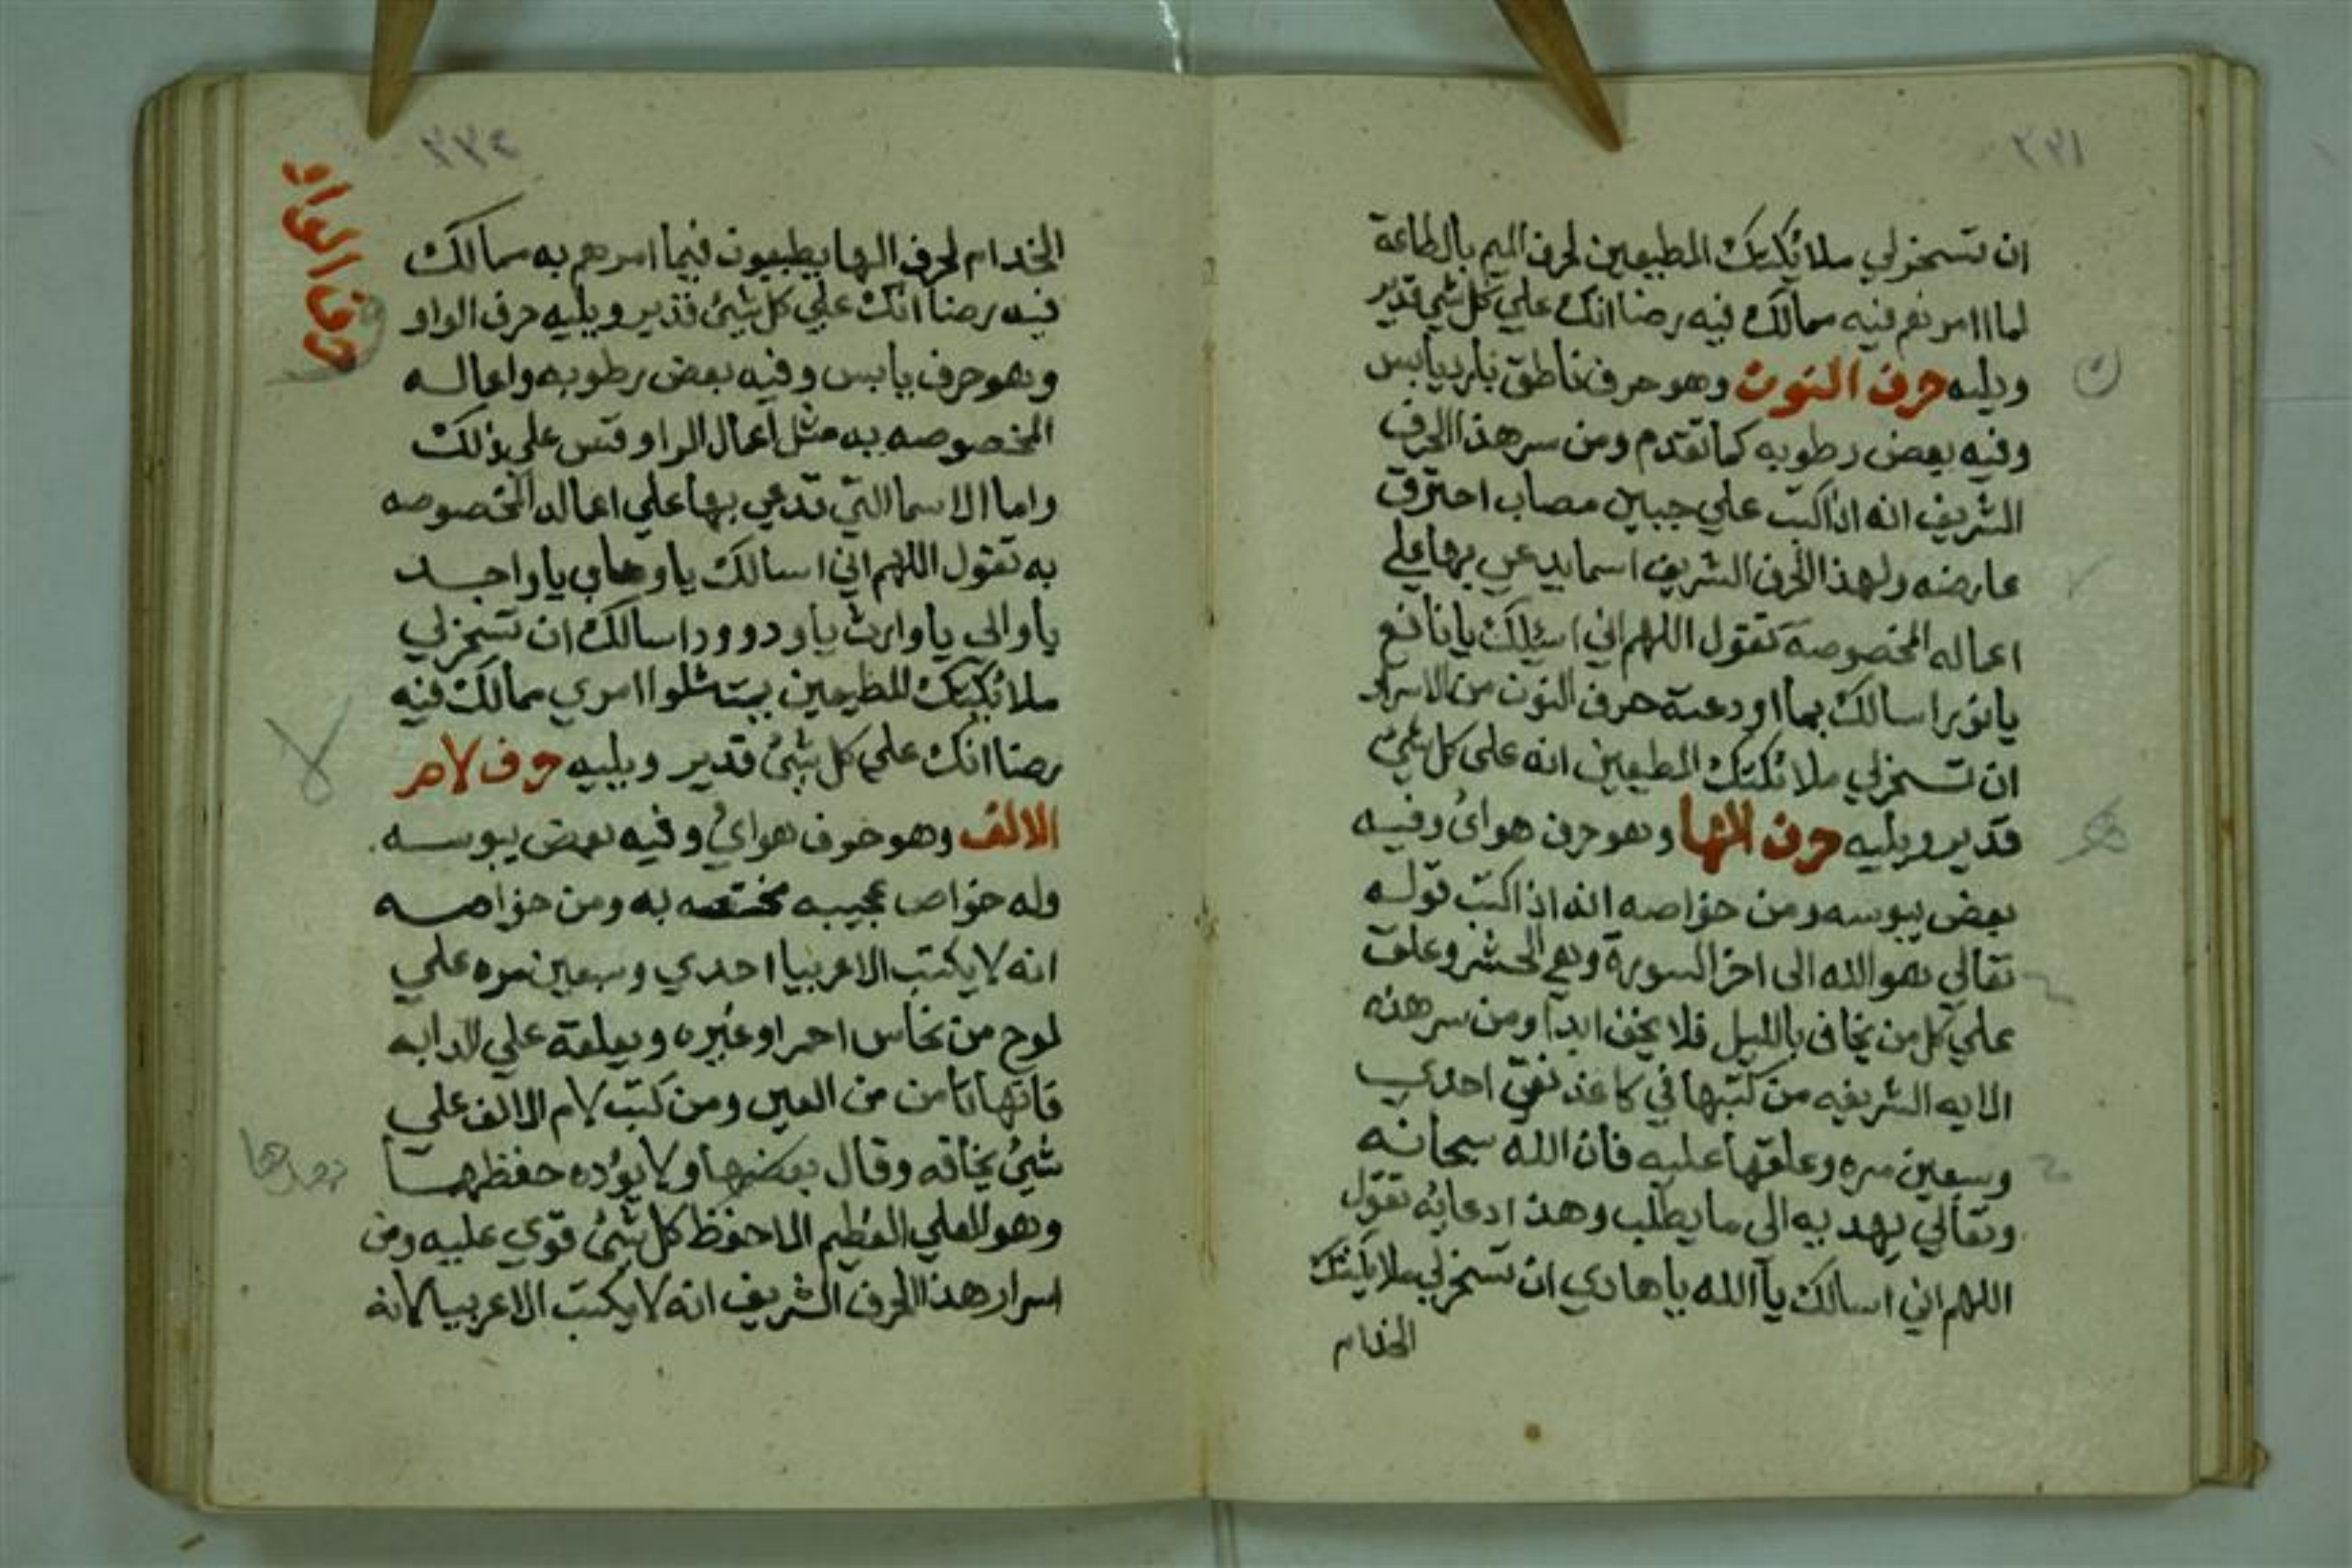 ٢٢١
ان تسخر لي ملائكتك المطيعين لحرف الميم بالطاعة
لما امرتهم فيه ممالك فيه رضا انك علي كل شي قدير
ويليه حرف النون وهو حرف ناطق نار يابس
وفيه بعض رطوبه كما تقدم ومن سر هذا الحرف
الشريف انه اذا كتب علي جبين مصاب احترق
عارضه ولهذا الحرف الشريف اسما يدعي بها علي
اعماله المخصوصة تقول اللهم اني اسئلك يا نافع
يا نور اسالك بما اودعته حرف النون من الاسرار
ان تسخر لي ملائكتك المطيعين انه علي كل شيء
قدير ويليه حرف الها وهو حرف هوائ وفيه
بعض يبوسه ومن خواصه انه اذا كتب قوله
تعالي هو الله الى اخر السورة وهي الحشر وعلق
علي كل من يخاف بالليل فلا يخف ابدا ومن سر هذه
الايه الشريفه من كتبها في كاغد نقي احدي
وسبعين مره وعلقها عليه فان الله سبحانه
وتعالي يهديه الي ما يطلب وهذا دعايه تقول
اللهم اني اسالك يا الله يا هادي ان تسخر لي ملايكتك
الخدام
ن
ه
٢٢٤
حرف الواو
الخدام لحرف الها يطيعون فيما امرهم به ممالك
فيه رضا انك علي كل شيئ قدير ويليه حرف الواو
وهو حرف يابس وفيه بعض رطوبه واعماله
المخصوصه به مثل اعمال الراو قس علي ذلك
واما الاسما التي تدعي بها علي اعماله المخصوصه
به تقول اللهم اني اسالك يا وهاب يا واجد
يا والي يا وارث يا ودوود اسالك ان تسخر لي
ملائكتك المطيعين يمتثلوا امري ممالك فيه
رضا انك علي كل شيئ قدير ويليه حرف لام
الالف وهو حرف هوائي وفيه بعض يبوسه
وله خواص عجيبه مختصه به ومن خواصه
انه لا يكتب الا عربيا احدي وسبعين مره علي
لوح من نحاس احمر او غيره ويعلقه علي الدابه
فانها تامن من العين ومن كتب لام الالف علي
شيئ يخافه وقال بعضها ولا يؤده حفظهما
وهو العلي العظيم الا حفظ كل شيئ قوي عليه ومن
اسرار هذا الحرف الشريف انه لا يكتب الا عربيا لانه
لا
بعدها